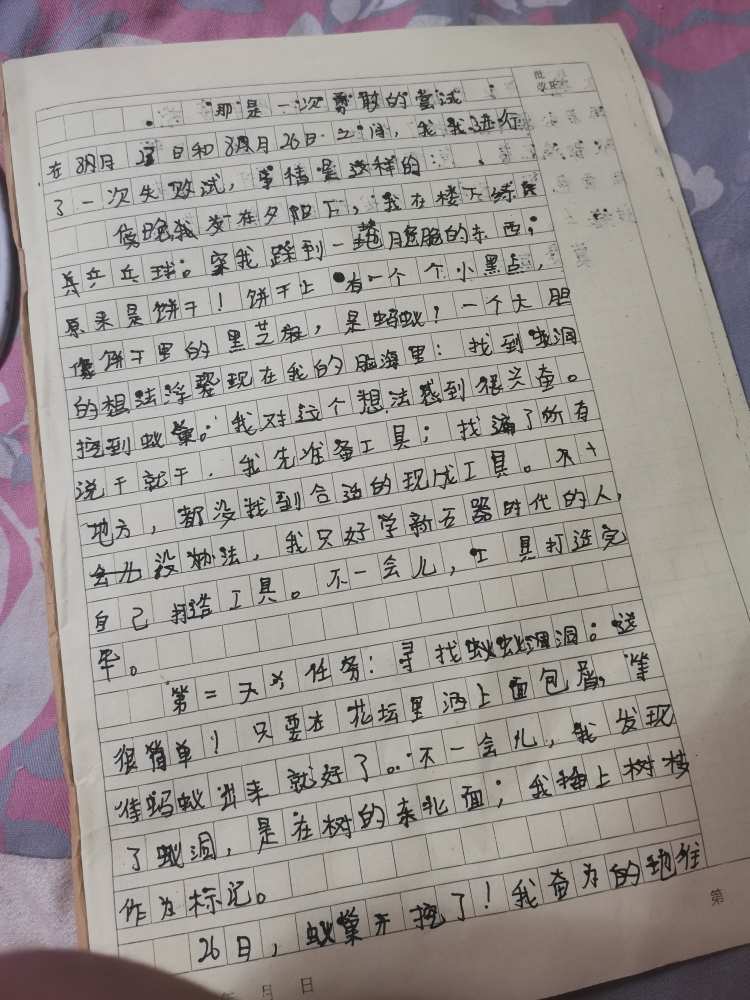 批
改
那是一次勇敢的尝试
在8月23日和8月26日之间，我我进行
了一次失败试，事情是这样的：
傍晚我在夕阳下，我在楼下练
兵乒乓球。我踩到一脆脆的东西；
原来是饼干！饼干上有一个个小黑点，
像饼干里的黑芝麻，是蚂蚁！一个大胆
的想法浮现在我的脑海里：找到蚁洞
挖到蚁巢。我对这个想法感到很兴奋。
说干就干，我先准备工具；找遍了所有
地方，都没找到合适的现成工具。
没办法，我只好学新石器时代的人，
自己打造工具。不一会儿，工具打造完
毕。
第二天，任务：寻找蚂蚁洞；这
很简单！只要在花坛里洒上面包屑，等
蚂蚁出来就好了。不一会儿，我发现
了蚁洞，是在树的东北面；我插上树枝
作为标记。
26日，蚁巢开挖了！我奋力的地往
第
年 月 日